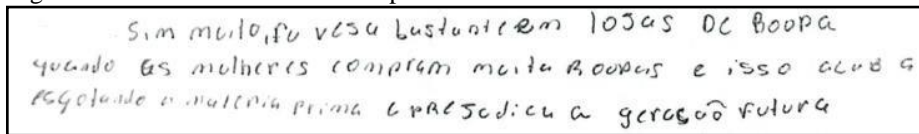 Sim muito, fu vesu bustante em lojas DE ROOPA
quando as mulheres compram muita ROOPAS e isso acub a
esgotando a materia prima e pRESedicu a geração futura